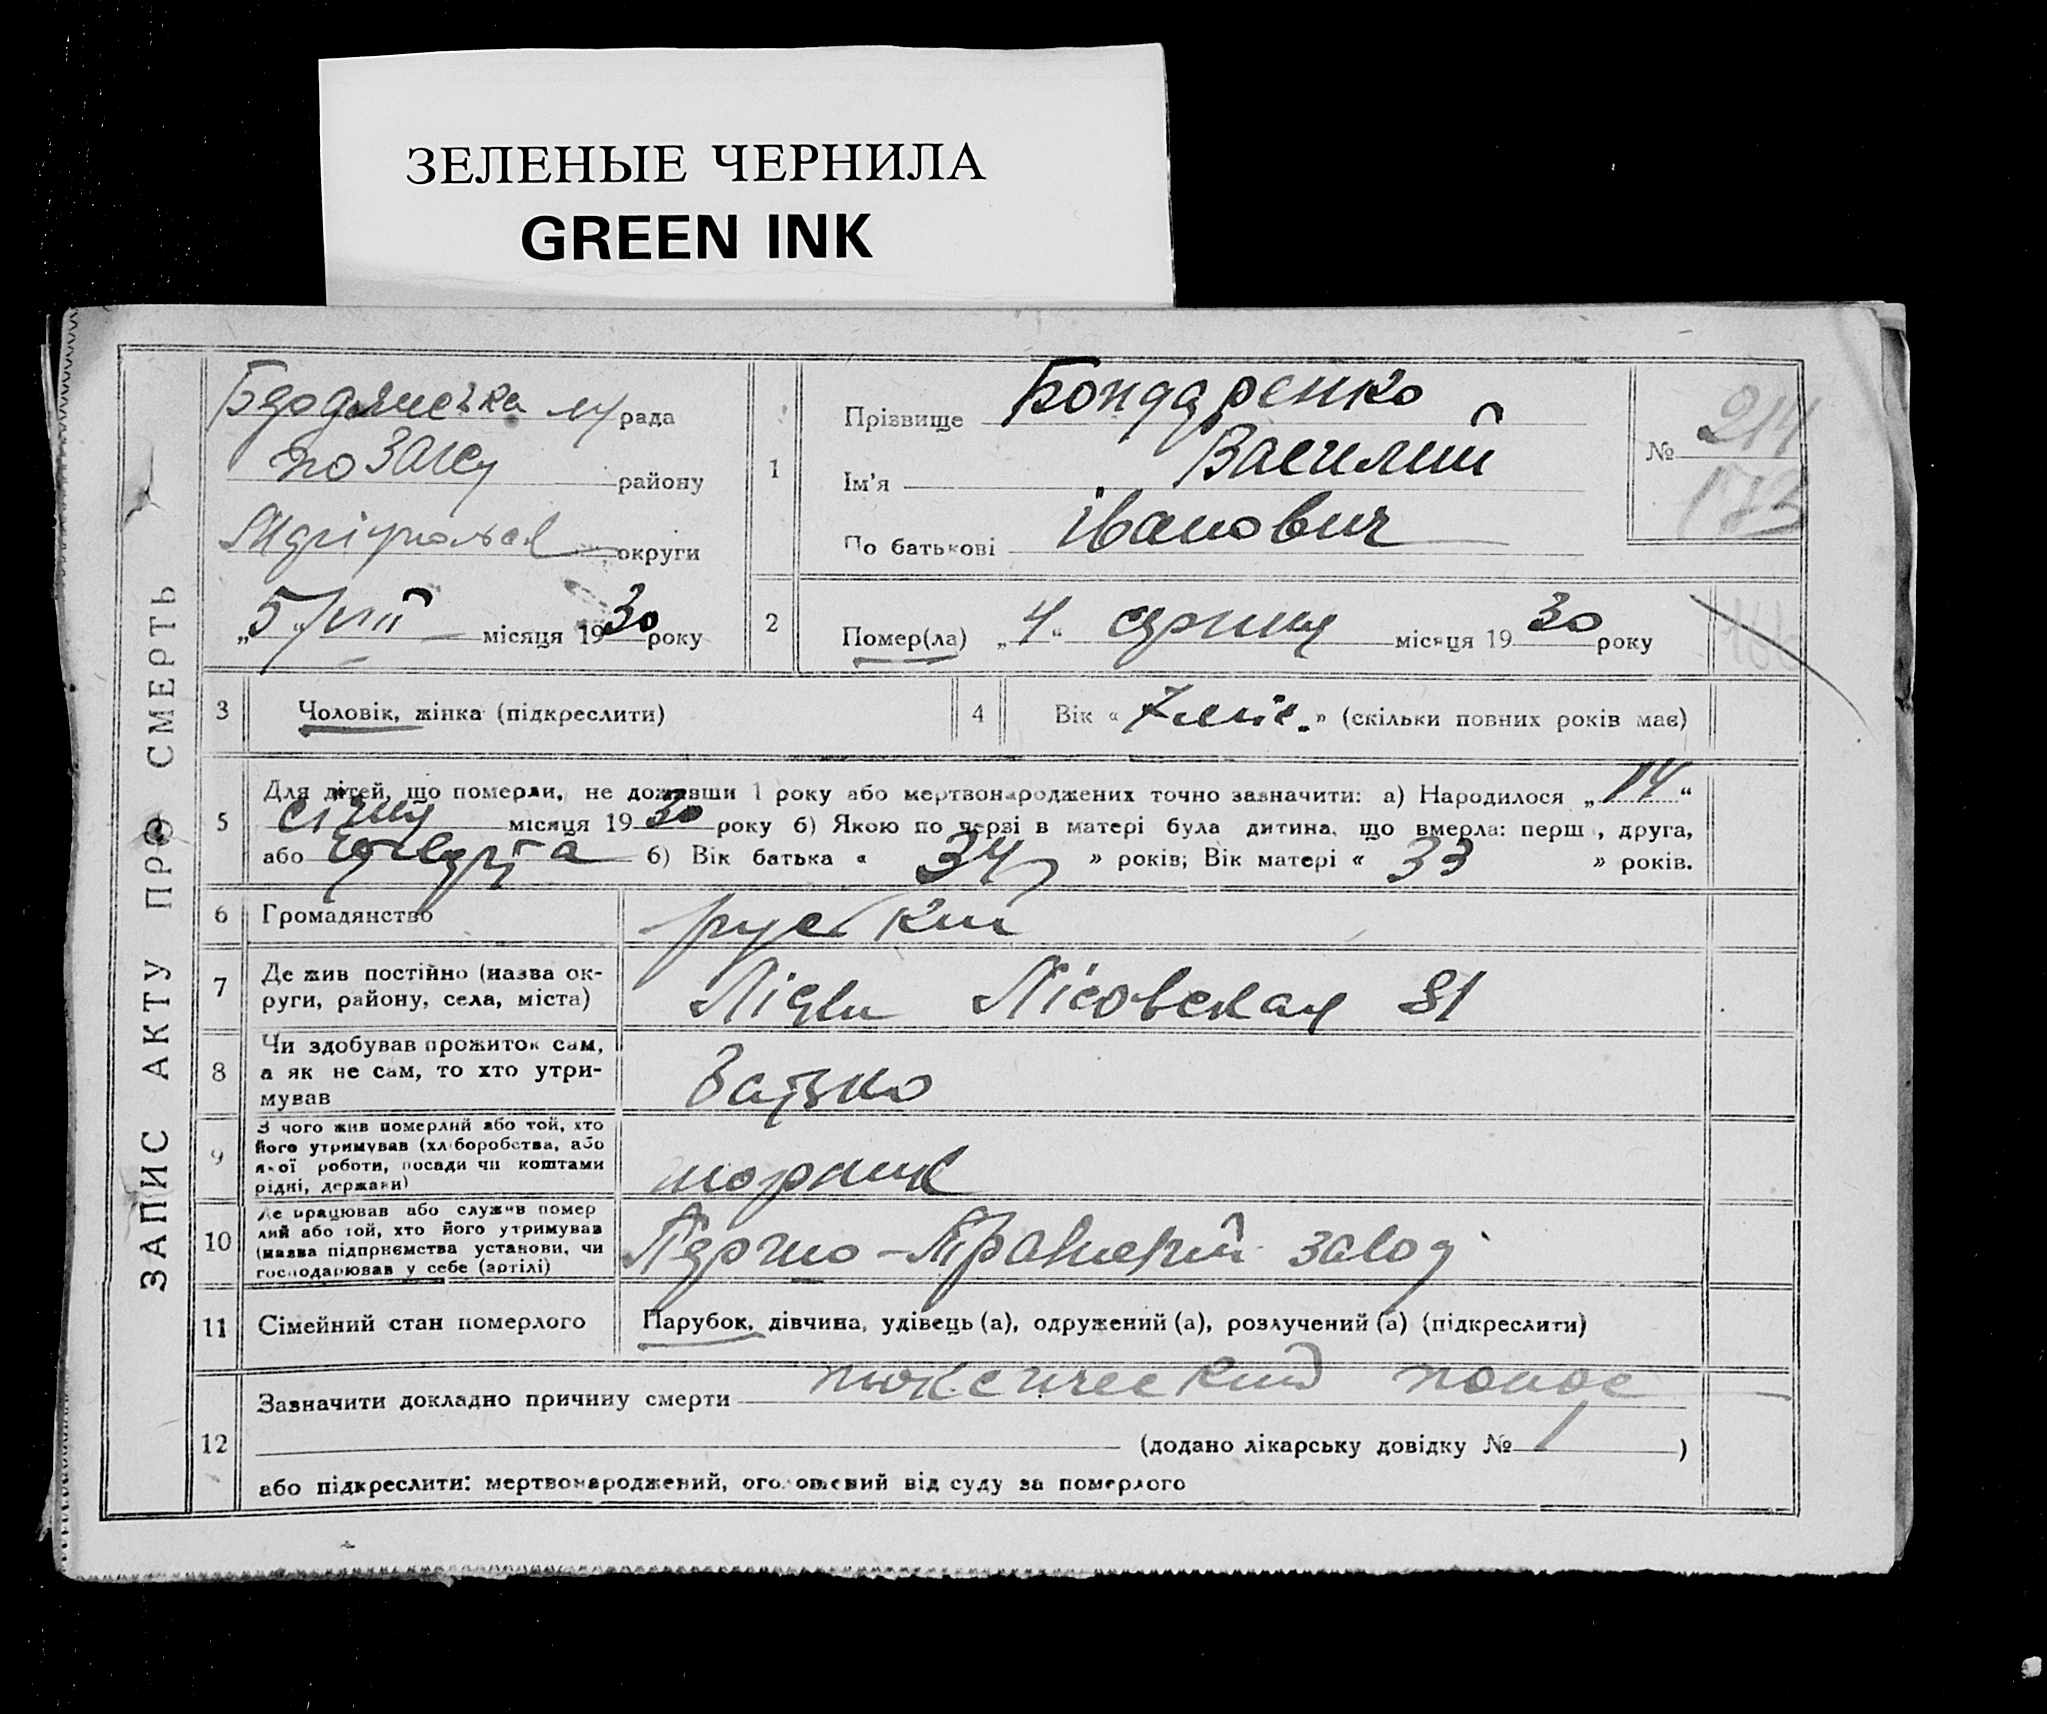 ЗЕЛЕНЫЕ ЧЕРНИЛА
GREEN INK
ЗАПИС АКТУ ПРО СМЕРТЬ
Бердянська м/рада
по загсу району
Маріупольск округи
„5“ VIII місяця 1930 року
1
Прізвище Бондаренко
Ім'я Василий
По батькові Іванович
№ 214
173
2
Помер(ла) „4“ серпня місяця 1930 року
3
Чоловік, жінка (підкреслити)
4
Вік «7 міс.» (скільки повних років має)
5
Для дітей, що померли, не доживши 1 року або мертвонароджених точно зазначити: а) Народилося „14“
січня місяця 1930 року б) Якою по черзі в матері була дитина, що вмерла: перша, друга,
або четверта б) Вік батька «34» років; Вік матері «33» років.
6
Громадянство руський
7
Де жив постійно (назва округи, району, села, міста)
Лиски Лісовская 81
8
Чи здобував прожиток сам, а як не сам, то хто утримував
Батько
9
З чого жив померлий або той, хто його утримував (хліборобства, або якої роботи, посади чи коштами рідні, держави)
10
Де працював або служив помер лий або той, хто його утримував (назва підприємства установи, чи господарював у себе (артілі)
Першо-Травневий завод
11
Сімейний стан померлого
Парубок, дівчина, удівець (а), одружений (а), розлучений (а) (підкреслити)
12
Зазначити докладно причину смерти токсический понос
(додано лікарську довідку № 1)
або підкреслити: мертвонароджений, оголошений від суду за померлого